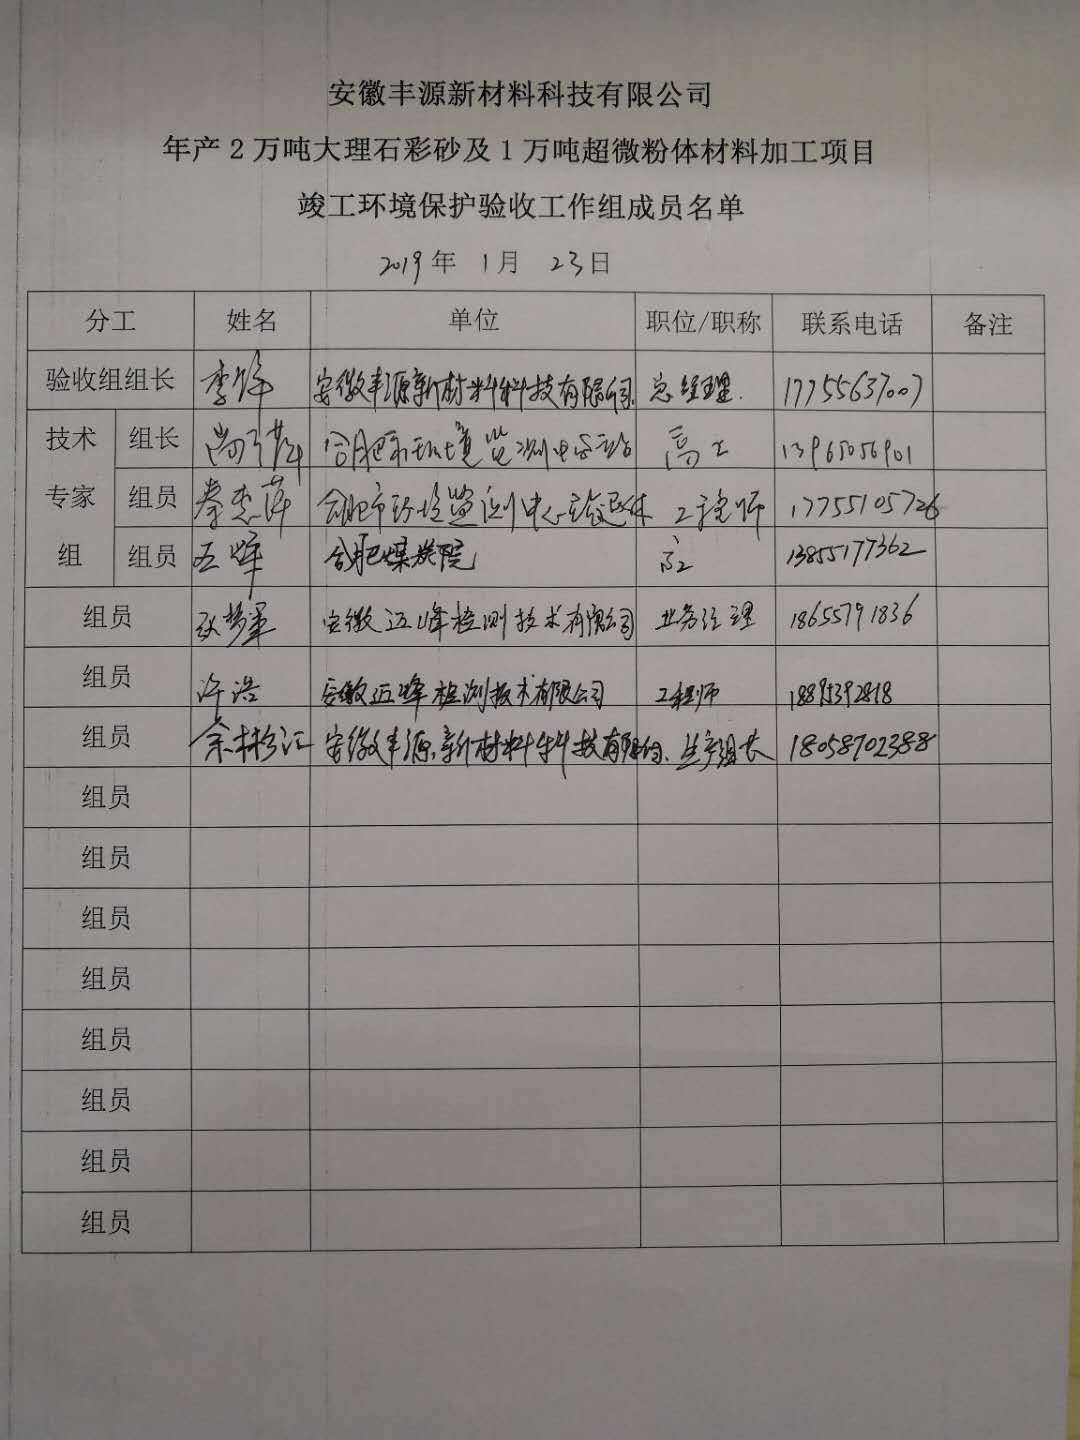 安徽丰源新材料科技有限公司
年产2万吨大理石彩砂及1万吨超微粉体材料加工项目
竣工环境保护验收工作组成员名单
2019年 1月 23日
分工 姓名 单位 职位/职称 联系电话 备注
验收组组长 李锋 安徽丰源新材料科技有限公司 总经理 17755637007
技术专家组 组长 合肥市环境监测中心站 高工 13965056901
组员 秦志萍 合肥市环境监测中心站 工程师 17755105726
组员 王烽 合肥煤炭院 高工 13855177362
组员 张梦军 安徽迈峰检测技术有限公司 业务经理 18655791836
组员 许浩 安徽迈峰检测技术有限公司 工程师 18895392818
组员 余彬江 安徽丰源新材料科技有限公司 生产组长 18058702388
组员
组员
组员
组员
组员
组员
组员
组员